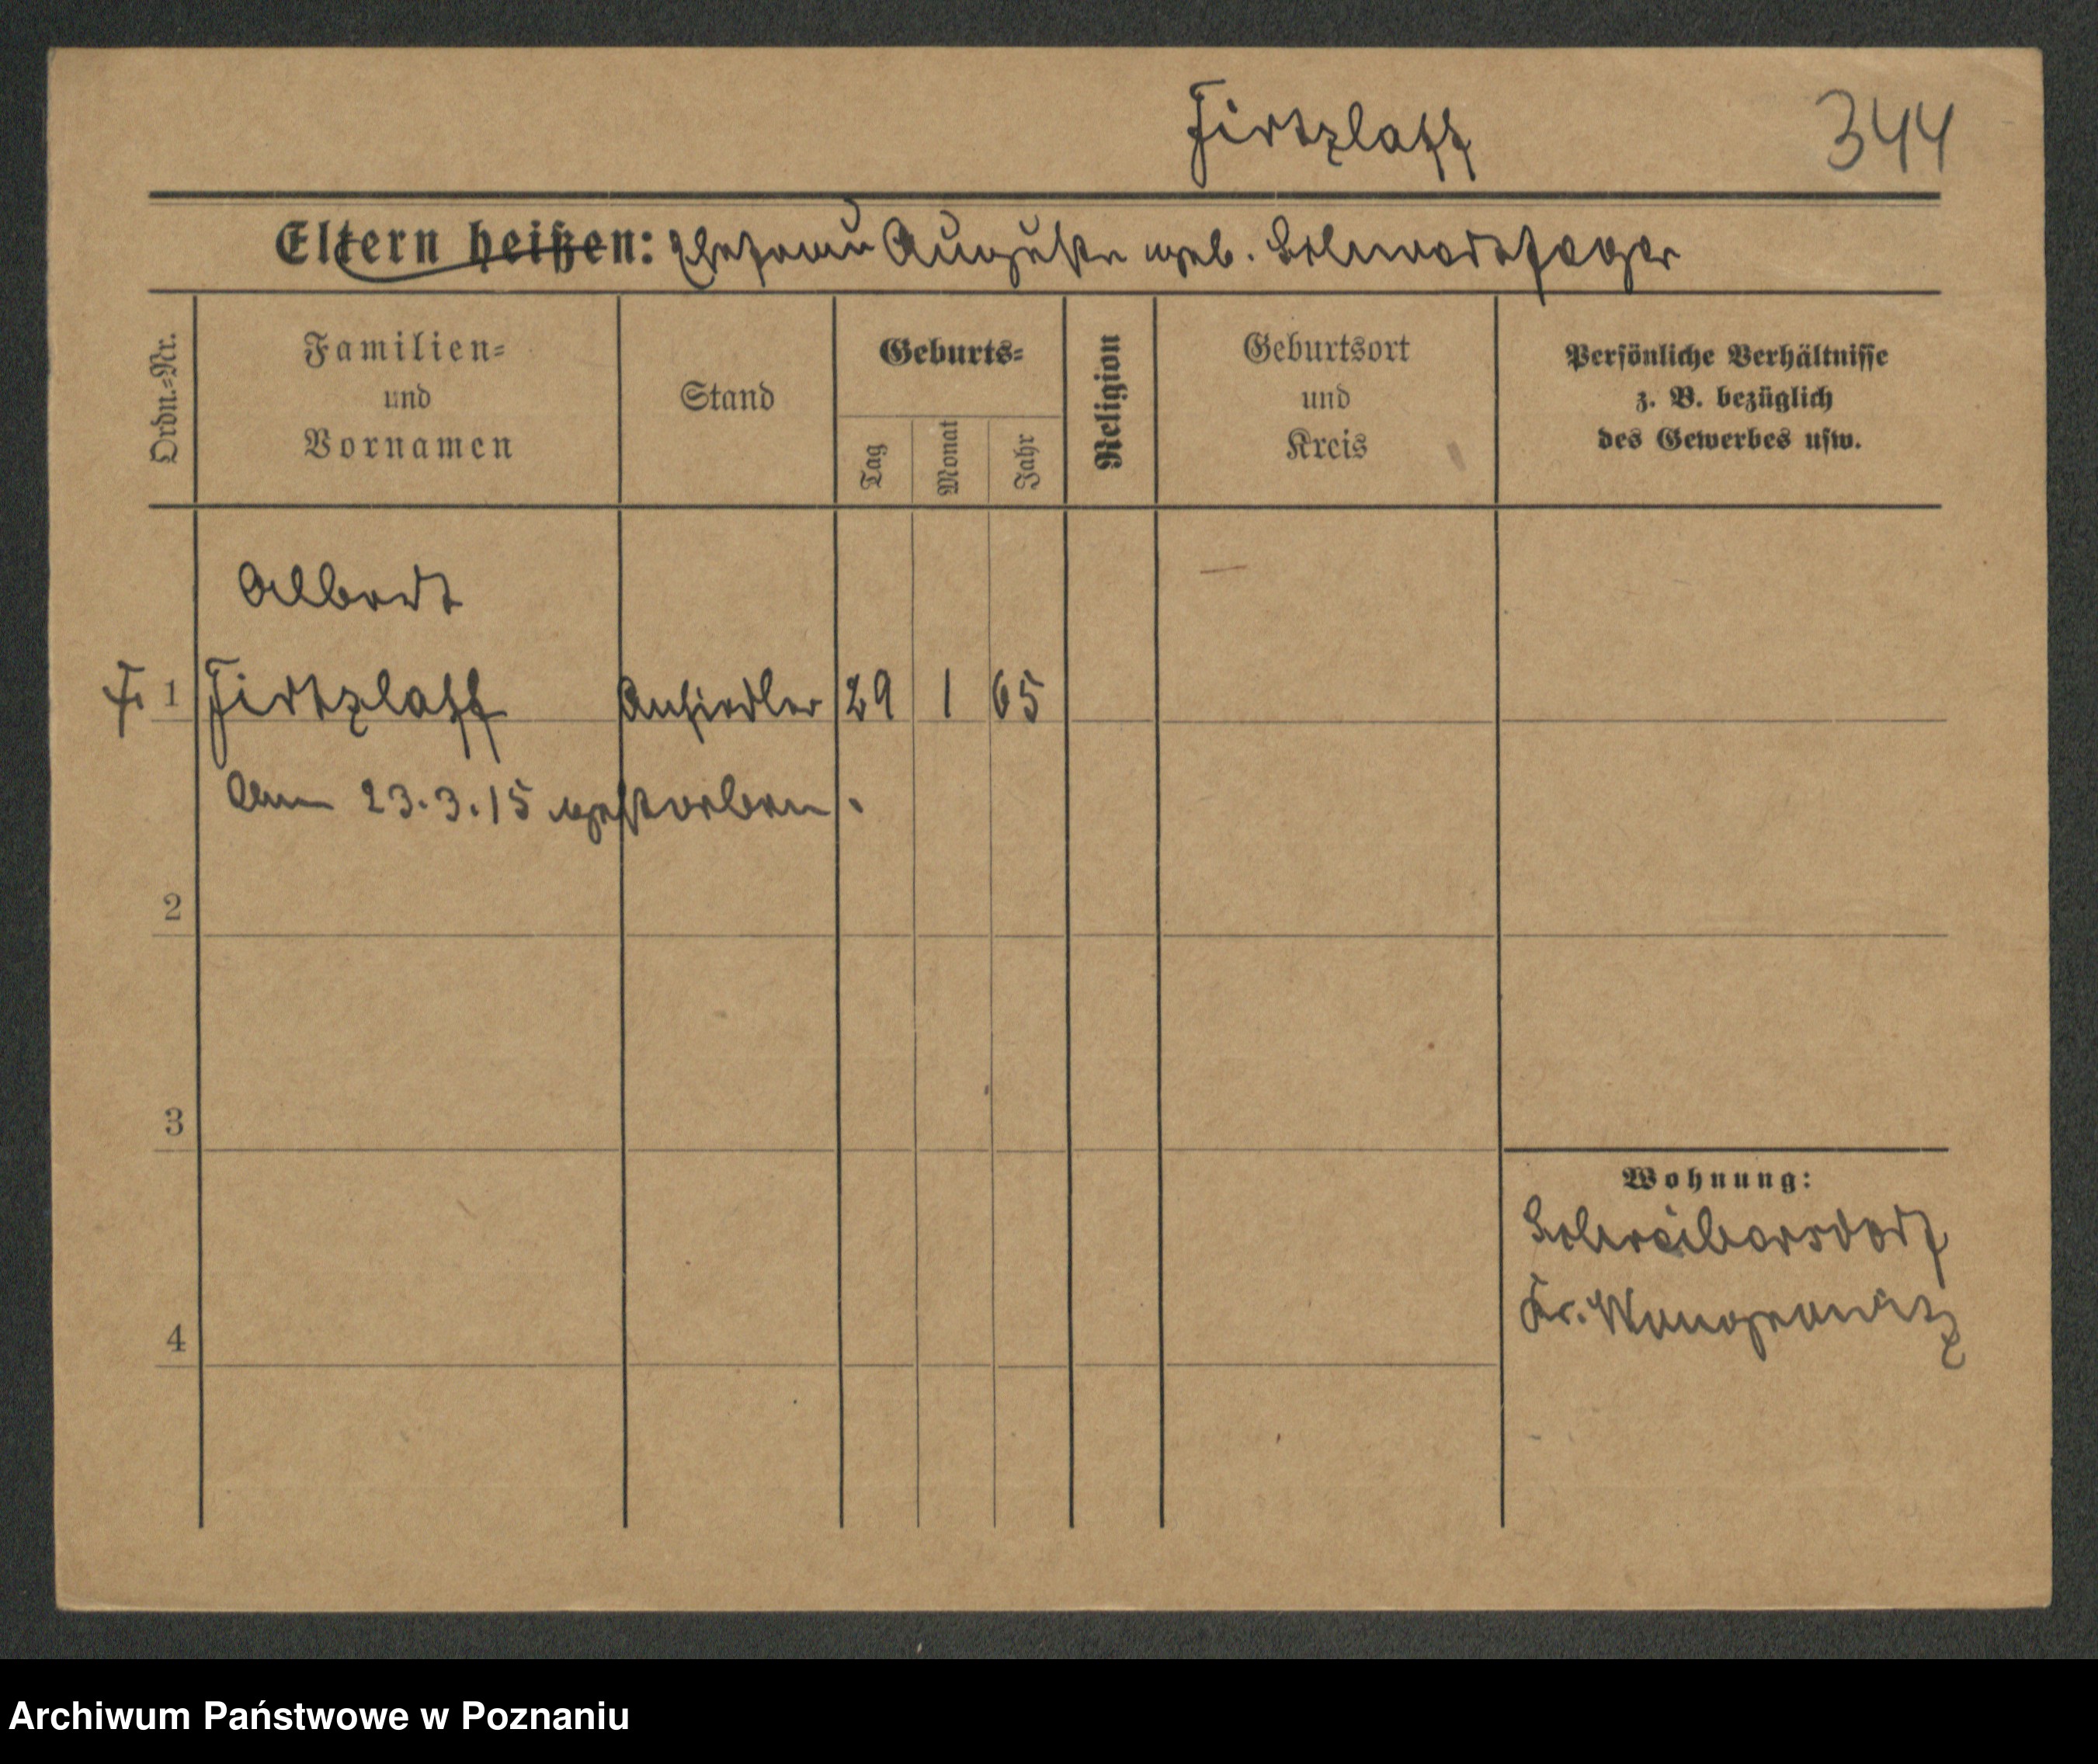 Firtzlaff 344
Eltern heißen: Ehefrau Auguste geb.
Ordn.=Nr. Familien= und Vornamen Stand Geburts= Tag Monat Jahr Religion Geburtsort und Kreis Persönliche Verhältnisse z. B. bezüglich des Gewerbes usw.
Albert
1 Firtzlaff Ansiedler 29 1 65
Am 23.3.15 gestorben.
2
3
Wohnung:
Schreibersdorf
Kr. Wongrowitz
4
Archiwum Państwowe w Poznaniu